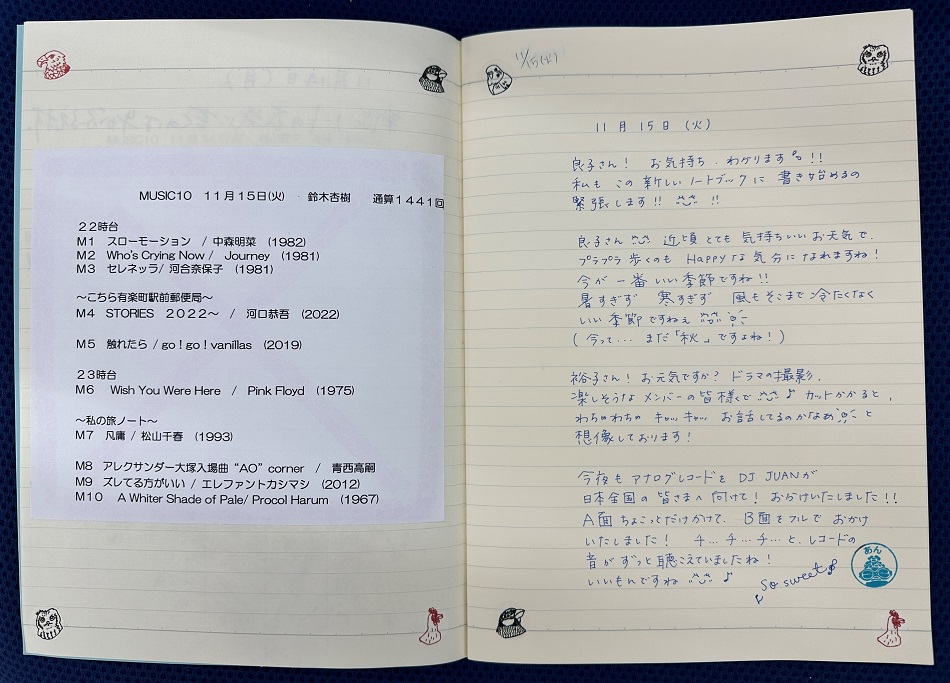 MUSIC10 11月15日(火) 鈴木杏樹 通算1441回
22時台
M1 スローモーション / 中森明菜 (1982)
M2 Who's Crying Now / Journey (1981)
M3 セレネッラ/ 河合奈保子 (1981)
～こちら有楽町駅前郵便局～
M4 STORIES 2022～ / 河口恭吾 (2022)
M5 触れたら / go！go！vanillas (2019)
23時台
M6 Wish You Were Here / Pink Floyd (1975)
～私の旅ノート～
M7 凡庸 / 松山千春 (1993)
M8 アレクサンダー大塚入場曲 “AO” corner / 青西高嗣
M9 ズレてる方がいい / エレファントカシマシ (2012)
M10 A Whiter Shade of Pale/ Procol Harum (1967)
11/15(火)
11月15日 (火)
良子さん! お気持ち、わかります!!
私も この新しいノートブックに 書き始めるの
緊張します!! !!
良子さん 近頃 とても 気持ちいい お天気で、
プラプラ 歩くのも Happyな 気分に なれますね!
今が 一番 いい 季節ですね!!
暑すぎず 寒すぎず 風も そこまで 冷たくなく
いい 季節ですねぇ
( 今って… まだ「秋」ですよね! )
裕子さん! お元気ですか? ドラマの撮影、
楽しそうな メンバーの 皆様で ♪ カットかかると、
わちゃわちゃ キャッキャッ お話してるのかなぁ と
想像しております!
今夜も アナログレコードを DJ JUANが
日本全国の 皆さまへ 向けて! おかけいたしました!!
A面 ちょこっとだけかけて、 B面を フルで おかけ
いたしました! チ… チ… チ… と、レコードの
音が ずっと 聴こえていましたね!
いいもんですね ♪
So sweet♪
あん